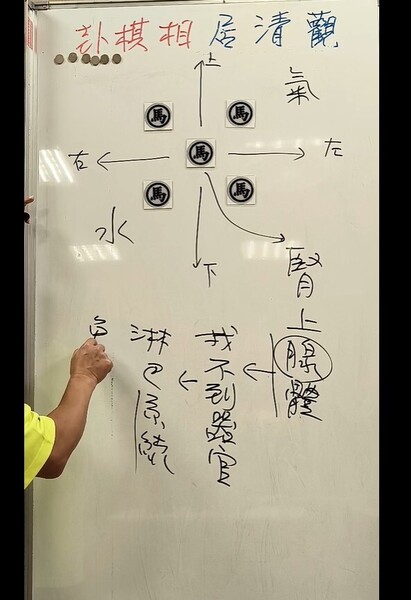 觀清居相棋卦
上
氣
馬
馬
右
馬
左
馬
馬
水
下
腎上腺體
找不到器官
淋巴系統